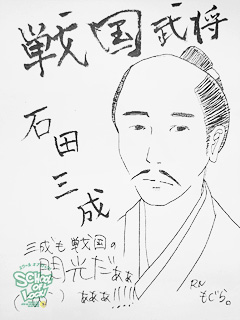 戦国武将
石田三成
三成も戦国の
閃光だぁぁ
ぁぁぁ!!!!!
RN
もぐら。
SCHOOL OF LOCK!